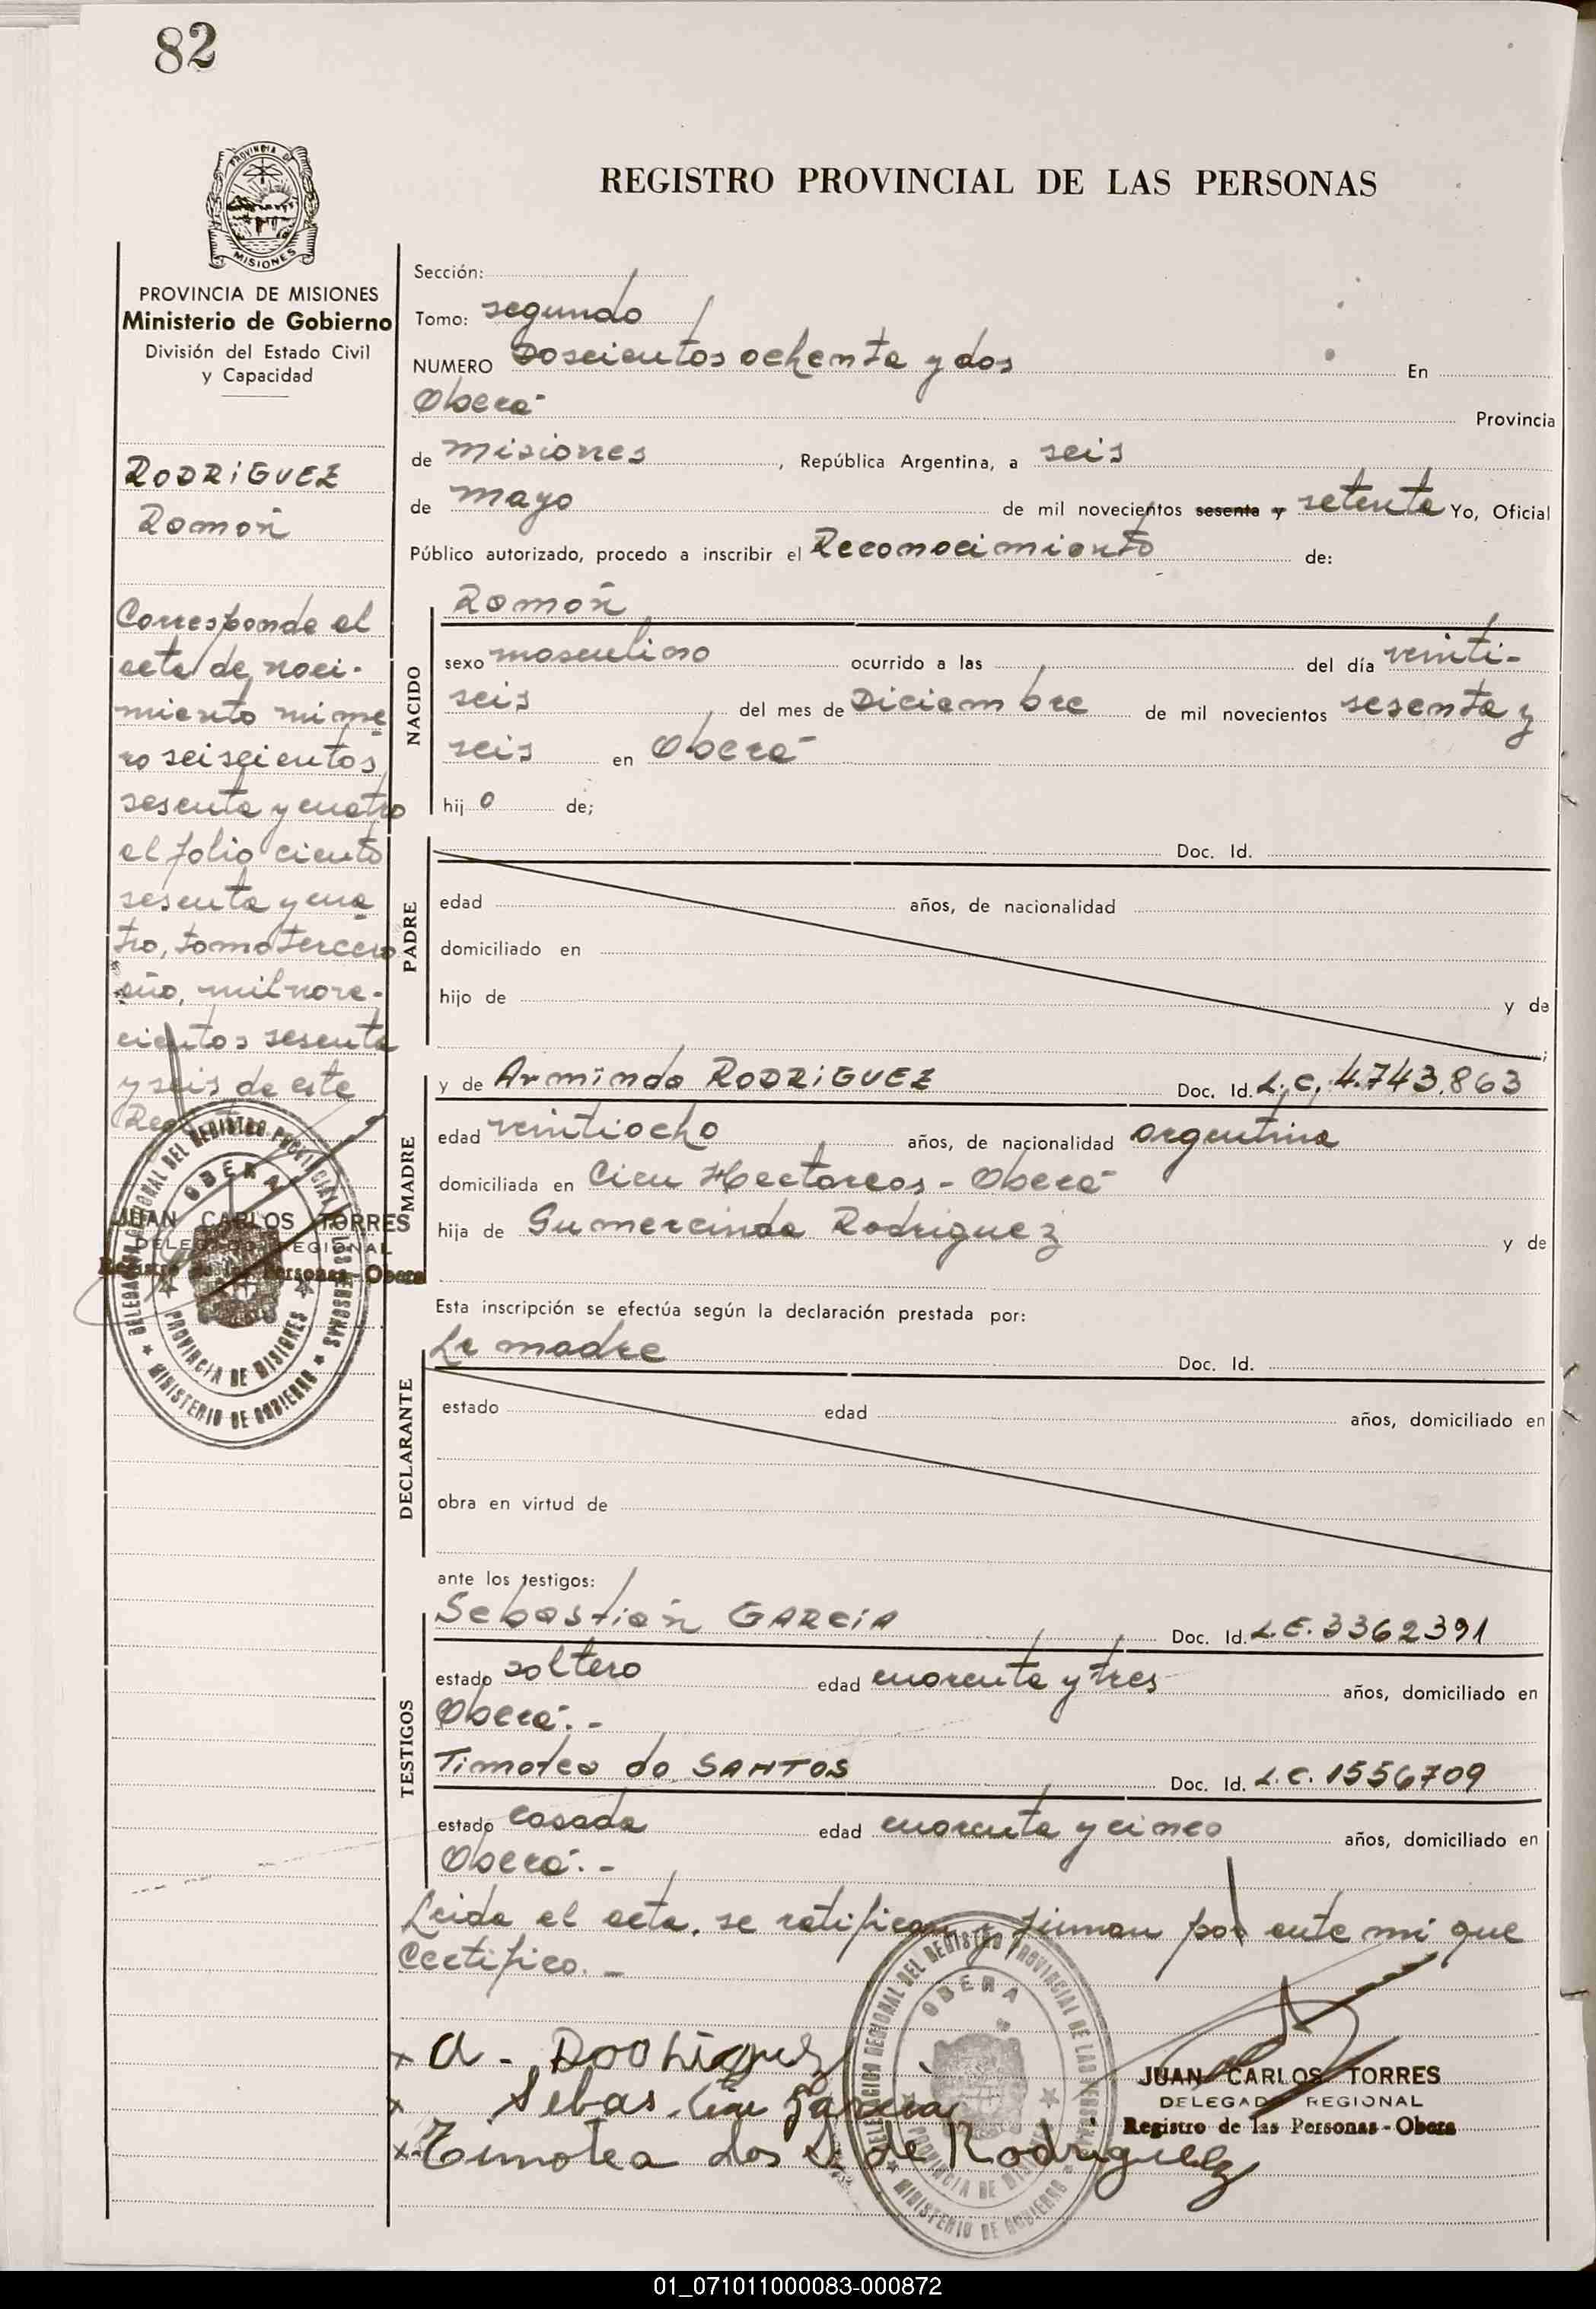 82
REGISTRO PROVINCIAL DE LAS PERSONAS
PROVINCIA DE MISIONES
PROVINCIA DE MISIONES
Ministerio de Gobierno
División del Estado Civil
y Capacidad
RODRIGUEZ
Ramón
Corresponde al
acta de naci-
miento núme
ro seiscientos
sesenta y cuatro
al folio ciento
sesenta y cua
tro, tomo tercero
año, mil nove-
cientos sesenta
y seis de este
Reg
DELEGACION REGIONAL DEL REGISTRO PROVINCIAL DE LAS PERSONAS
OBERA
PROVINCIA DE MISIONES
MINISTERIO DE GOBIERNO
JUAN CARLOS TORRES
DELEGADO REGIONAL
Registro de las Personas - Obera
Sección:
Tomo: segundo
NUMERO Doscientos ochenta y dos En
Oberá Provincia
de Misiones, República Argentina, a seis
de mayo de mil novecientos sesenta y setenta Yo, Oficial
Público autorizado, procedo a inscribir el Reconocimiento de:
NACIDO
Ramón
sexo masculino ocurrido a las del día veinti-
seis del mes de Diciembre de mil novecientos sesenta y
seis en Oberá
hijo de;
PADRE
Doc. Id.
edad años, de nacionalidad
domiciliado en
hijo de y de
;
MADRE
y de Arminda RODRIGUEZ Doc. Id. L.C. 4.743.863
edad veintiocho años, de nacionalidad argentina
domiciliada en Cien Hectareas - Oberá
hija de Gumercinda Rodriguez y de
Esta inscripción se efectúa según la declaración prestada por:
DECLARANTE
La madre Doc. Id.
estado edad años, domiciliado en
obra en virtud de
ante los testigos:
TESTIGOS
Sebastián GARCIA Doc. Id. L.E. 3362391
estado soltero edad cuarenta y tres años, domiciliado en
Oberá.-
Timotea do SANTOS Doc. Id. L.C. 1556709
estado casada edad cuarenta y cinco años, domiciliado en
Oberá.-
Leida el acta, se ratifican y firman por ante mi que
Certifico.-
x A - Rodriguez
x Sebastián Garcia
x Timotea dos S. de Rodriguez
DELEGACION REGIONAL DEL REGISTRO PROVINCIAL DE LAS PERSONAS
OBERA
PROVINCIA DE MISIONES
MINISTERIO DE GOBIERNO
JUAN CARLOS TORRES
DELEGADO REGIONAL
Registro de las Personas - Obera
01_071011000083-000872